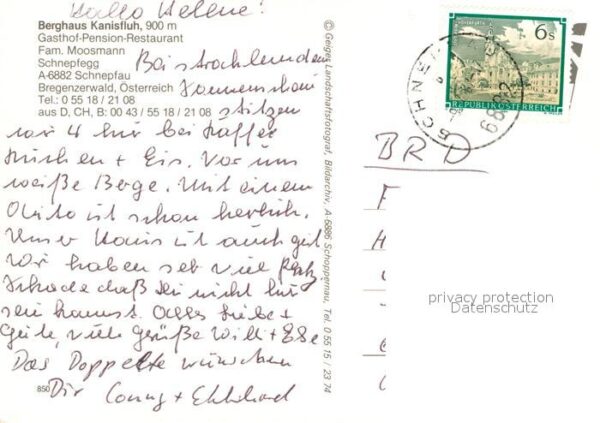 Hallo Helene!
Berghaus Kanisfluh, 900 m
Gasthof-Pension-Restaurant
Fam. Moosmann
Schnepfegg
A-6882 Schnepfau
Bregenzerwald, Österreich
Tel.: 0 55 18 / 21 08
aus D, CH, B: 00 43 / 55 18 / 21 08
Bei strahlendem
Sonnenschein
sitzen
wir 4 hier bei Kaffee
Kuchen + Eis. Vor uns
weiße Berge. Mit einem
Auto ist schon herrlich.
Unser Haus ist auch gut
Wir haben sehr viel Platz
Schade daß Du nicht hier
sein kannst. Alles Liebe +
Gute, viele Grüße Willi + Else
Das Doppelte wünschen
Dir Conny + Ekkehard
850
© Geiges Landschaftsfotograf, Bildarchiv, A-6886 Schoppernau, Tel. 0 55 15 / 23 74
6 S
REPUBLIK ÖSTERREICH
SCHNE
BRD
F
H
privacy protection
Datenschutz